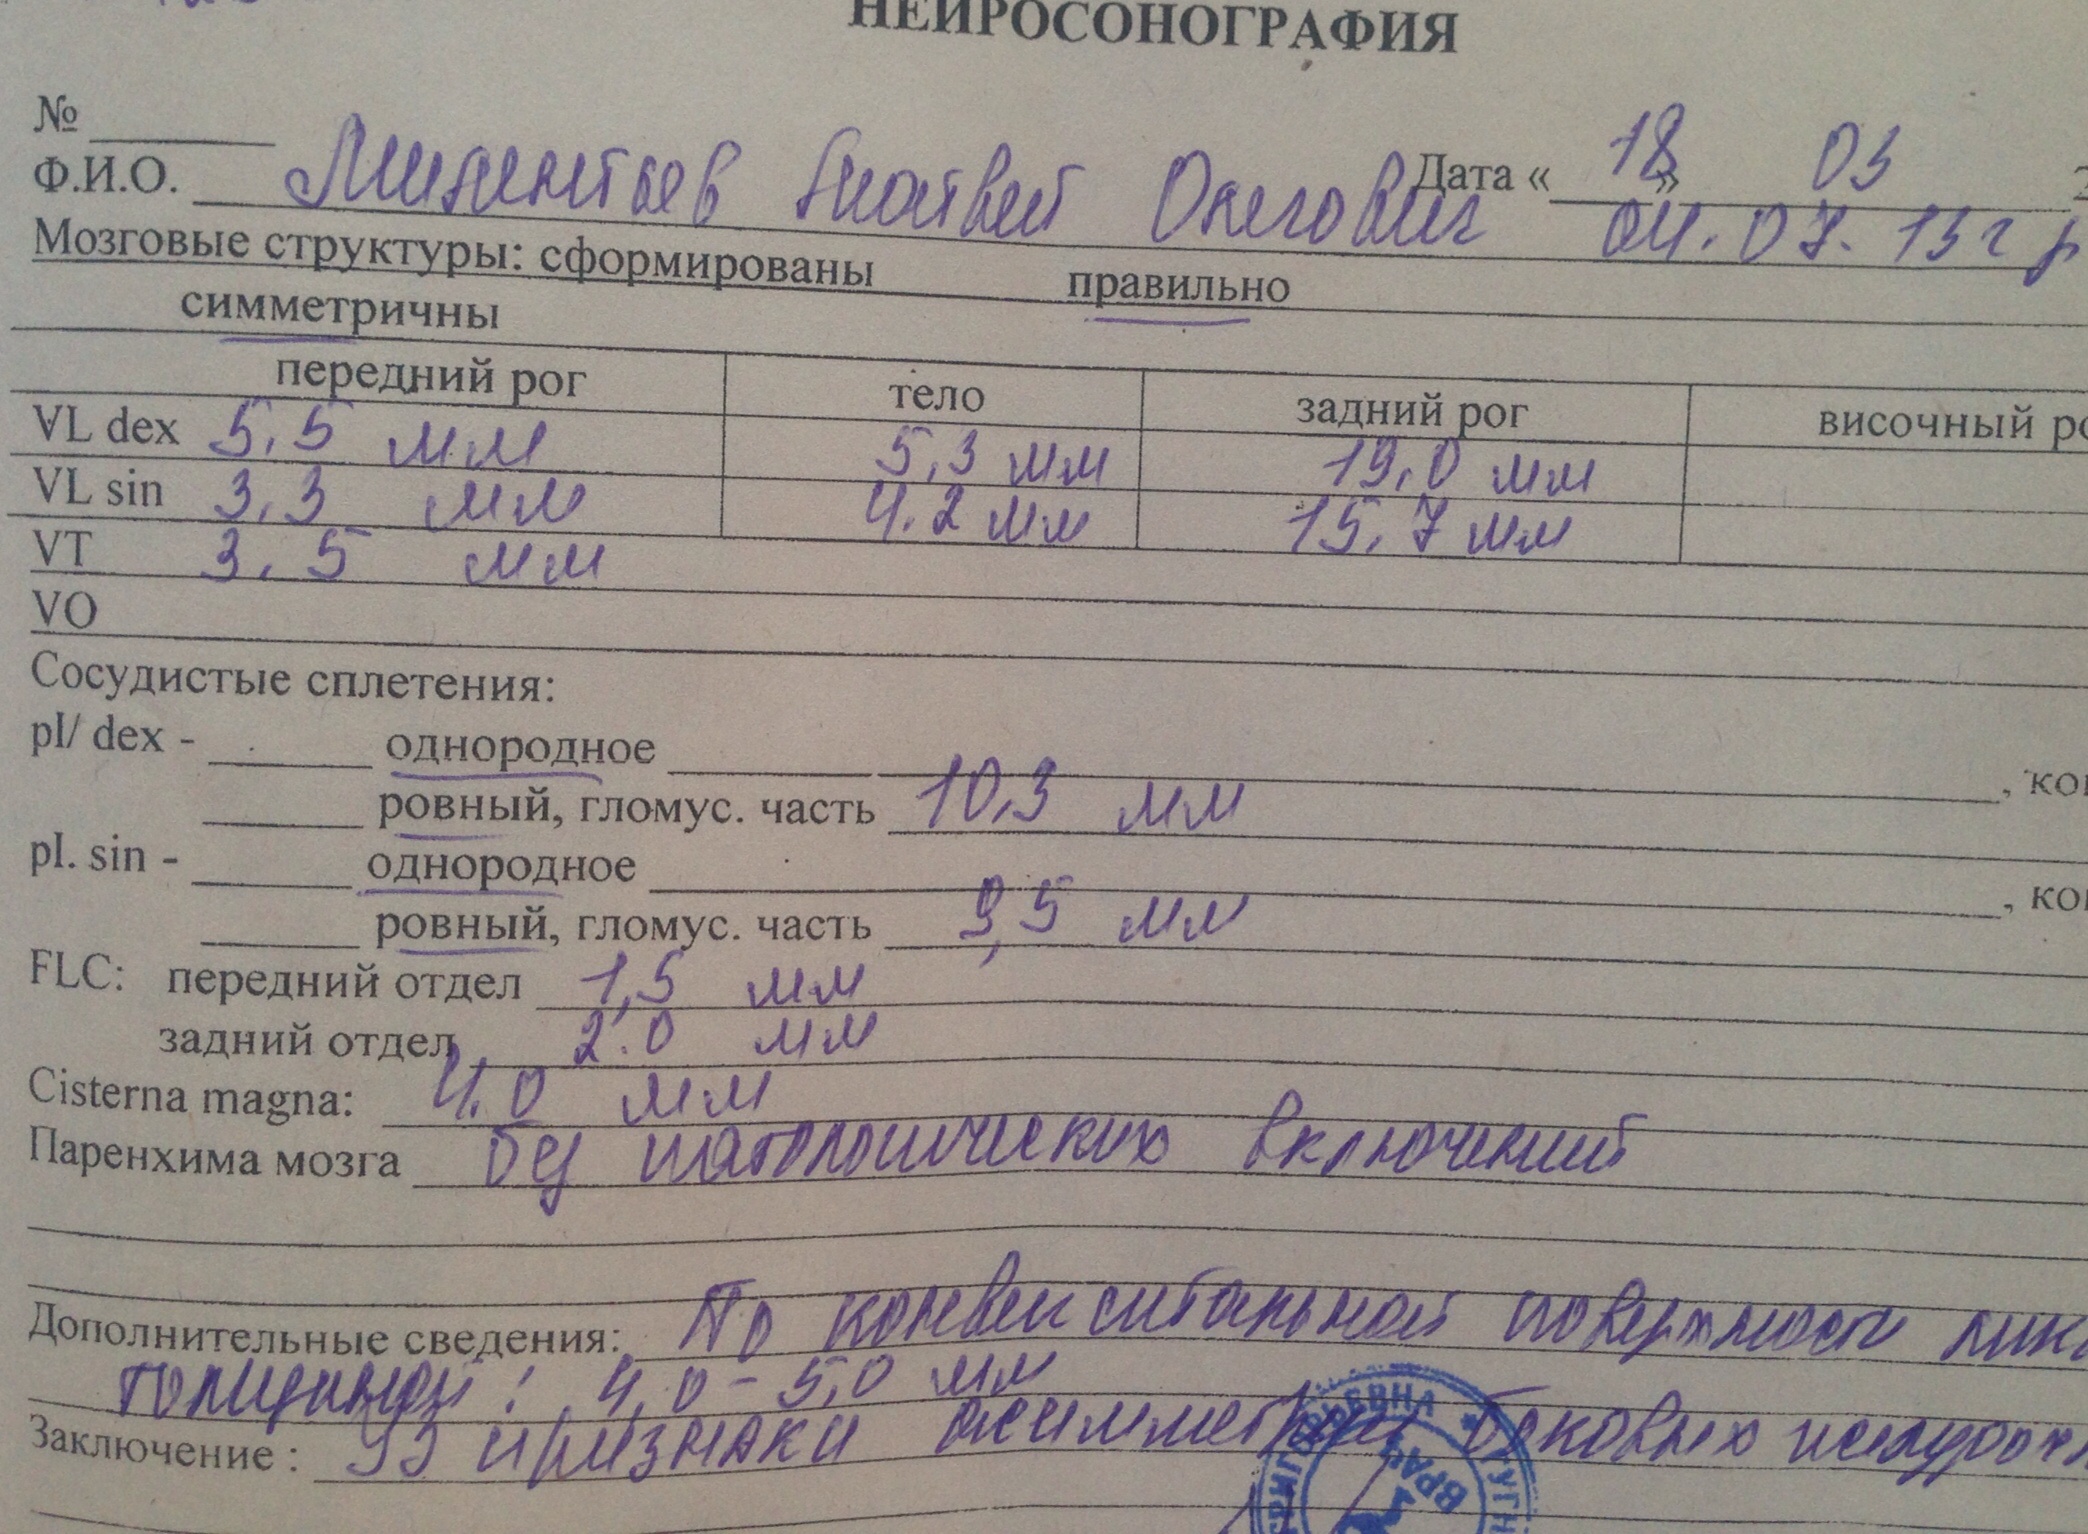 НЕЙРОСОНОГРАФИЯ
№
Дата « 18 » 03 2
Ф.И.О. Олегович 04.07.13г р
Мозговые структуры: сформированы правильно
симметричны
передний рог тело задний рог височный ро
VL dex 5,5 мм 5,3 мм 19,0 мм
VL sin 3,3 мм 4,2 мм 15,7 мм
VT 3,5 мм
VO
Сосудистые сплетения:
pl/ dex - однородное , кон
ровный, гломус. часть 10,3 мм
pl. sin - однородное , кон
ровный, гломус. часть 9,5 мм
FLC: передний отдел 1,5 мм
задний отдел 2.0 мм
Cisterna magna: 4.0 мм
Паренхима мозга без патологических включений
Дополнительные сведения: По конвекситальной поверхности лик
толщиной: 4,0-5,0 мм
Заключение : УЗ признаки асимметрии боковых желудочк
ВРАЧ